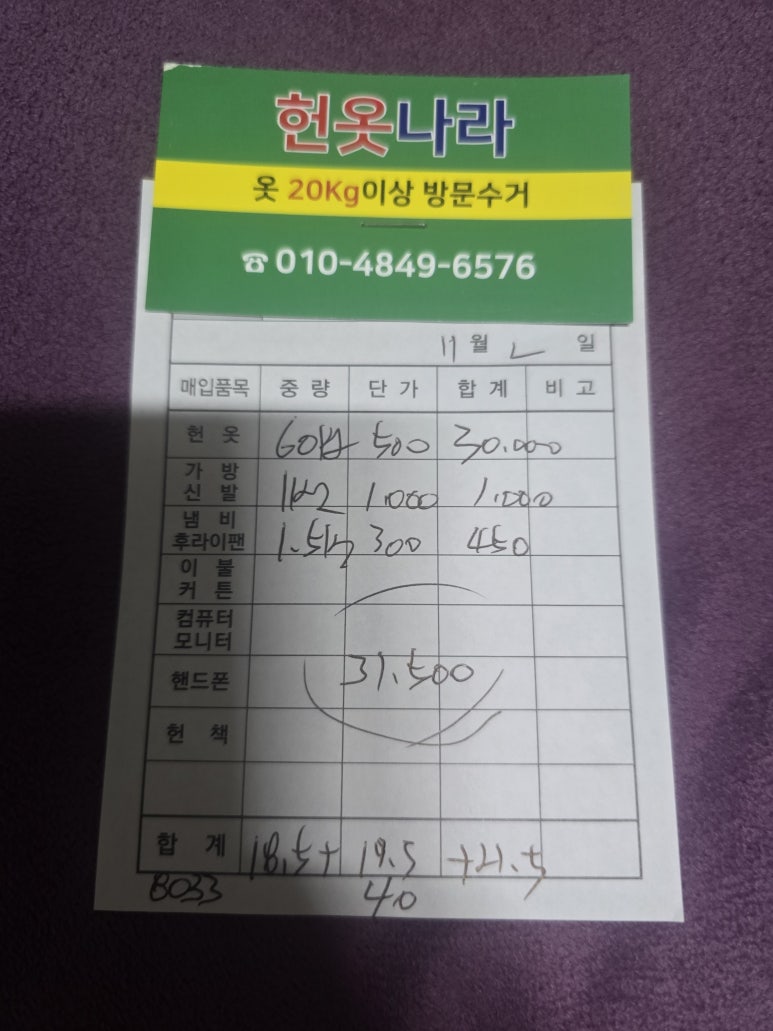 헌옷나라
옷 20Kg이상 방문수거
☎ 010-4849-6576
11 월 2 일
매입품목 중 량 단 가 합 계 비 고
헌 옷 60kg 500 30.000
가 방
신 발 1kg 1.000 1.000
냄 비
후라이팬 1.5kg 300 450
이 불
커 튼
컴퓨터
모니터
핸드폰 31.500
헌 책
합 계 18.5+ 19.5 +21.5
8033 40